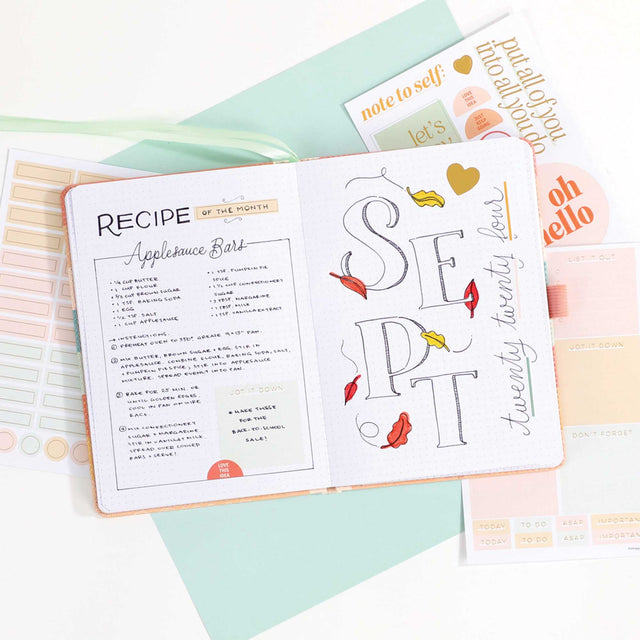 RECIPE OF THE MONTH
Applesauce Bars
• ¼ CUP BUTTER
• 1 CUP FLOUR
• 2/3 CUP BROWN SUGAR
• 1 TSP. BAKING SODA
• 1 EGG
• ½ TSP. SALT
• 1 CUP APPLESAUCE
• 1 TSP. PUMPKIN PIE
SPICE
• 1 ½ CUP CONFECTIONERY
SUGAR
• 3 TBSP. MARGARINE
• 1 TBSP. MILK
• 1 TSP. VANILLA EXTRACT
→ INSTRUCTIONS:
① PREHEAT OVEN TO 350° GREASE 9×13" PAN.
② MIX BUTTER, BROWN SUGAR + EGG. STIR IN
APPLESAUCE. COMBINE FLOUR, BAKING SODA, SALT,
+ PUMPKIN PIE SPICE; STIR INTO APPLESAUCE
MIXTURE. SPREAD EVENLY INTO PAN.
③ BAKE FOR 25 MIN. OR
UNTIL GOLDEN EDGES.
COOL IN PAN OR WIRE
RACK.
④ MIX CONFECTIONERY
SUGAR + MARGARINE
STIR IN VANILLA + MILK
SPREAD OVER COOLED
BARS + SERVE!
JOT IT DOWN
★ MAKE THESE
FOR THE
BACK-TO-SCHOOL
SALE!
LOVE
THIS
IDEA
SEPT
twenty twenty four
note to self:
let's
LOVE
THIS IDEA
JUST KEEP
GOING
put all of you
into all you do
oh
hello
LIST IT OUT
JOT IT DOWN
DON'T FORGET
TODAY TO DO ASAP IMPORTANT
TODAY TO DO ASAP IMPORTAN